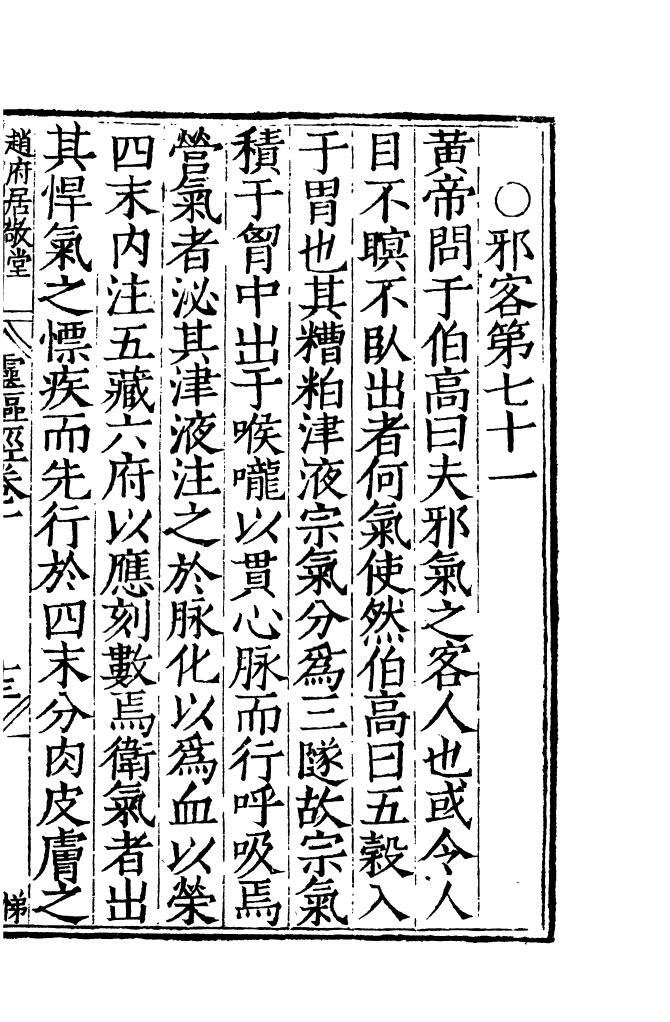 ○邪客第七十一
黄帝問于伯高曰夫邪氣之客人也或令人
目不瞑不臥出者何氣使然伯高曰五穀入
于胃也其糟粕津液宗氣分爲三隧故宗氣
積于胷中出于喉嚨以貫心脉而行呼吸焉
營氣者泌其津液注之於脉化以爲血以榮
四末内注五藏六府以應刻數焉衛氣者出
其悍氣之慓疾而先行於四末分肉皮膚之
趙府居敬堂 靈樞經卷十 十三 悌